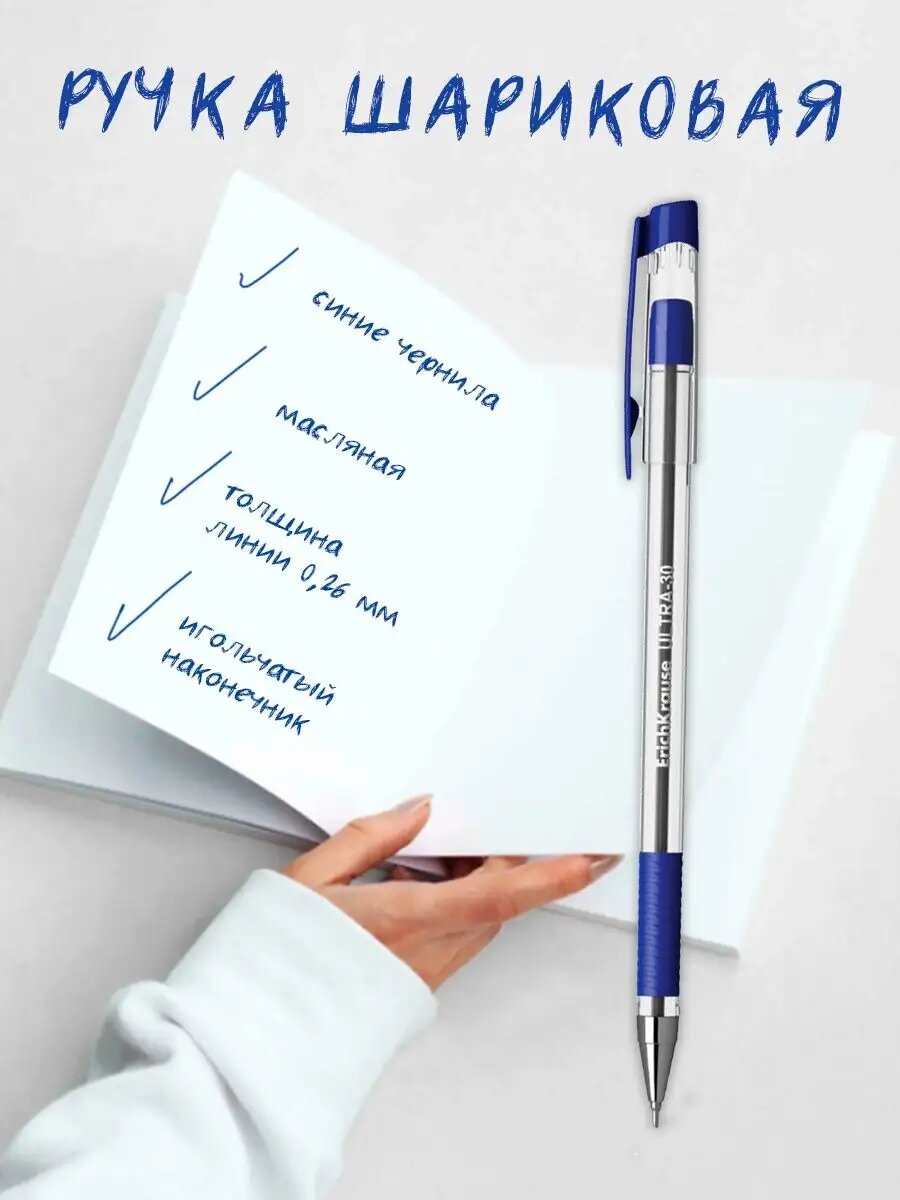 РУЧКА ШАРИКОВАЯ
синие чернила
масляная
толщина
линии 0,26 мм
игольчатый
наконечник
ErichKrause ULTRA-30